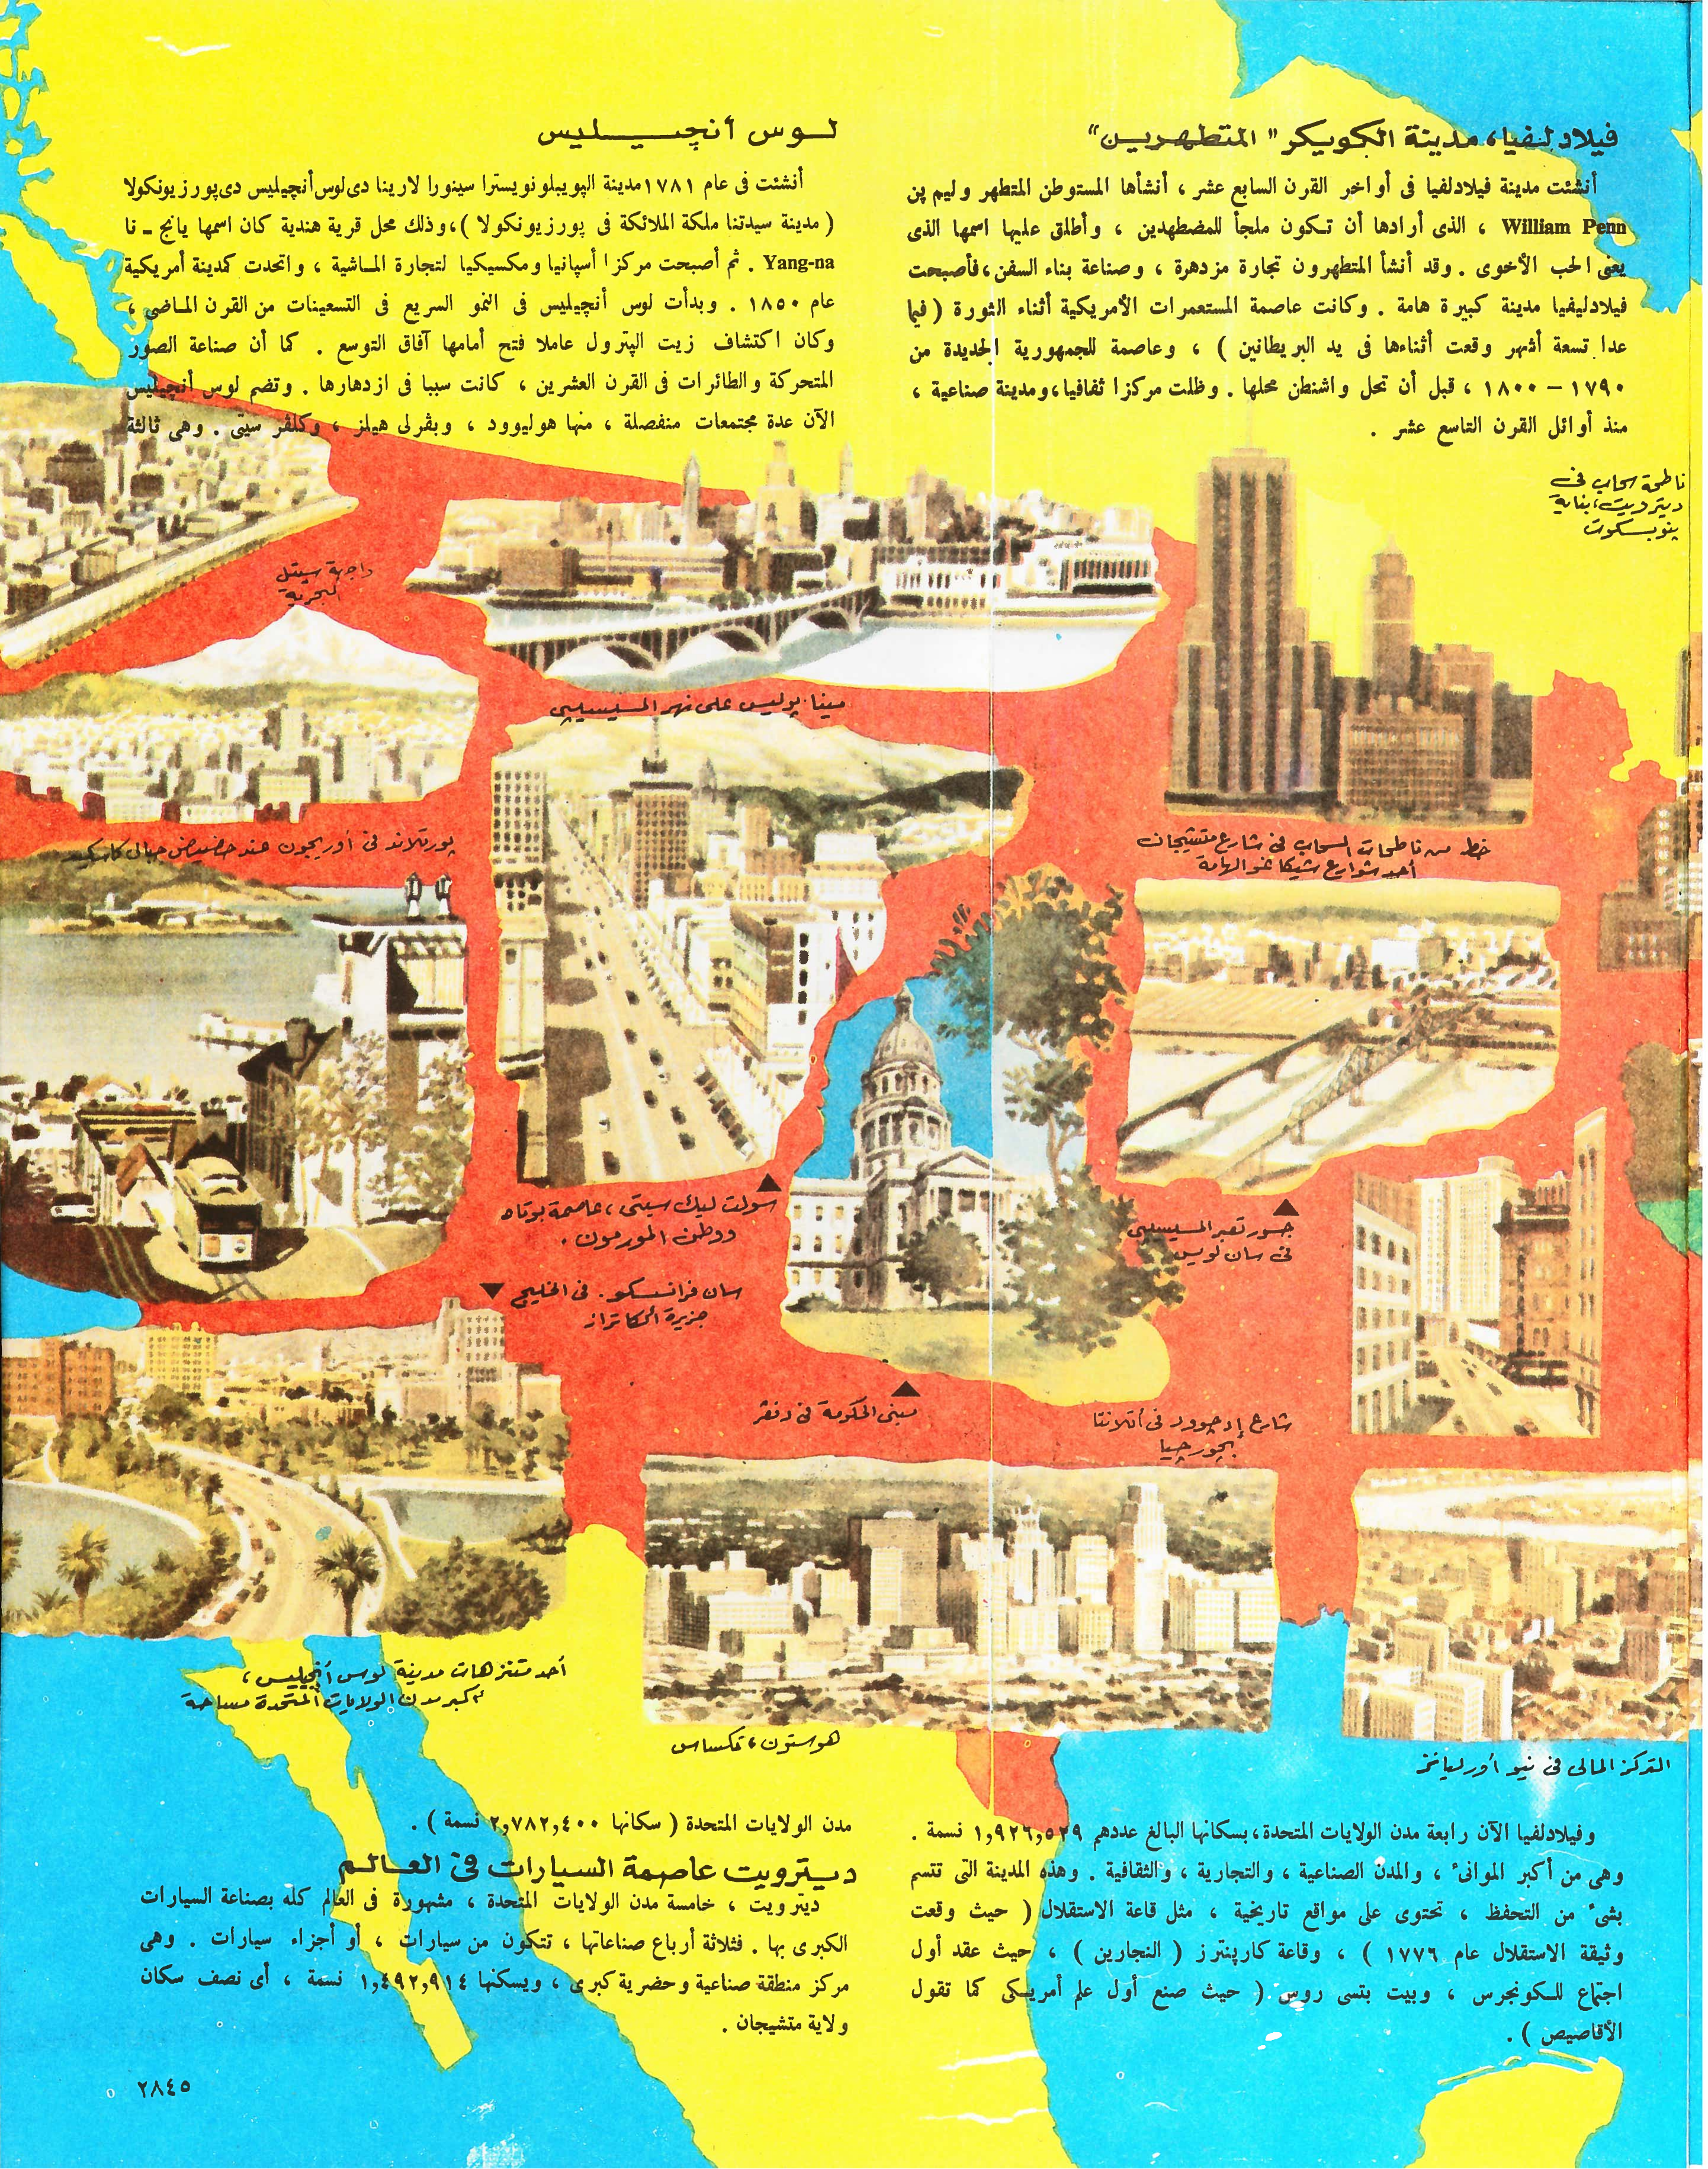 فيلادلفيا، مدينة الكويكر "المتطهرين"
أنشئت مدينة فيلادلفيا فى أواخر القرن السابع عشر ، أنشأها المستوطن المتطهر وليم پن
William Penn ، الذى أرادها أن تكون ملجأ للمضطهدين ، وأطلق عليها اسمها الذى
يعنى الحب الأخوى . وقد أنشأ المتطهرون تجارة مزدهرة ، وصناعة بناء السفن ، فأصبحت
فيلادليفيا مدينة كبيرة هامة . وكانت عاصمة المستعمرات الأمريكية أثناء الثورة ( فيما
عدا تسعة أشهر وقعت أثناءها فى يد البريطانين ) ، وعاصمة للجمهورية الجديدة من
١٧٩٠ – ١٨٠٠ ، قبل أن تحل واشنطن محلها . وظلت مركزا ثقافيا ، ومدينة صناعية ،
منذ أوائل القرن التاسع عشر .
لوس أنچيليس
أنشئت فى عام ١٧٨١ مدينة الپويبلونويسترا سينورا لارينا دى لوس أنچيليس دى پورزيونكولا
( مدينة سيدتنا ملكة الملائكة فى پورزيونكولا ) ، وذلك محل قرية هندية كان اسمها يانج ـ نا
Yang-na . ثم أصبحت مركزا أسپانيا ومكسيكيا لتجارة الماشية ، واتحدت كمدينة أمريكية
عام ١٨٥٠ . وبدأت لوس أنچيليس فى النمو السريع فى التسعينات من القرن الماضى ،
وكان اكتشاف زيت الپترول عاملا فتح أمامها آفاق التوسع . كما أن صناعة الصور
المتحركة والطائرات فى القرن العشرين ، كانت سببا فى ازدهارها . وتضم لوس أنچيليس
الآن عدة مجتمعات منفصلة ، منها هوليوود ، وبڤرلى هيلز ، وكلڤر سيتى . وهى ثالثة
ناطحة سحاب فى
ديترويت، بناية
پنوبسكوت
واجهة سيتل
البحرية
مينابوليس على نهر المسيسيپى
پورتلاند فى أوريجون عند حضيض جبال كاسكيد
خط من ناطحات السحاب فى شارع متشيجان
أحد شوارع شيكاغو الهامة
سولت ليك سيتى ، عاصمة يوتاه
ووطن المورمون .
جسور تعبر المسيسيپى
فى سان لويس
سان فرانسسكو . فى الخليج
جزيرة ألكاتراز
مبنى الحكومة فى دنڤر
شارع إدچوود فى أتلانتا
بچورچيا
أحد متنزهات مدينة لوس أنچيليس ،
أكبر مدن الولايات المتحدة مساحة
هوستون ، تكساس
التركز المالى فى نيو أورليانز
وفيلادلفيا الآن رابعة مدن الولايات المتحدة ، بسكانها البالغ عددهم ١,٩٢٦,٥٢٩ نسمة .
وهى من أكبر الموانئ ، والمدن الصناعية ، والتجارية ، والثقافية . وهذه المدينة التى تتسم
بشئ من التحفظ ، تحتوى على مواقع تاريخية ، مثل قاعة الاستقلال ( حيث وقعت
وثيقة الاستقلال عام ١٧٧٦ ) ، وقاعة كارپنترز ( النجارين ) ، حيث عقد أول
اجتماع للكونجرس ، وبيت بتسى روس ( حيث صنع أول علم أمريكى كما تقول
الأقاصيص ) .
مدن الولايات المتحدة ( سكانها ٢,٧٨٢,٤٠٠ نسمة ) .
ديترويت عاصمة السيارات فى العالم
ديترويت ، خامسة مدن الولايات المتحدة ، مشهورة فى العالم كله بصناعة السيارات
الكبرى بها . فثلاثة أرباع صناعاتها ، تتكون من سيارات ، أو أجزاء سيارات . وهى
مركز منطقة صناعية وحضرية كبرى ، ويسكنها ١,٤٩٢,٩١٤ نسمة ، أى نصف سكان
ولاية متشيجان .
٢٨٤٥